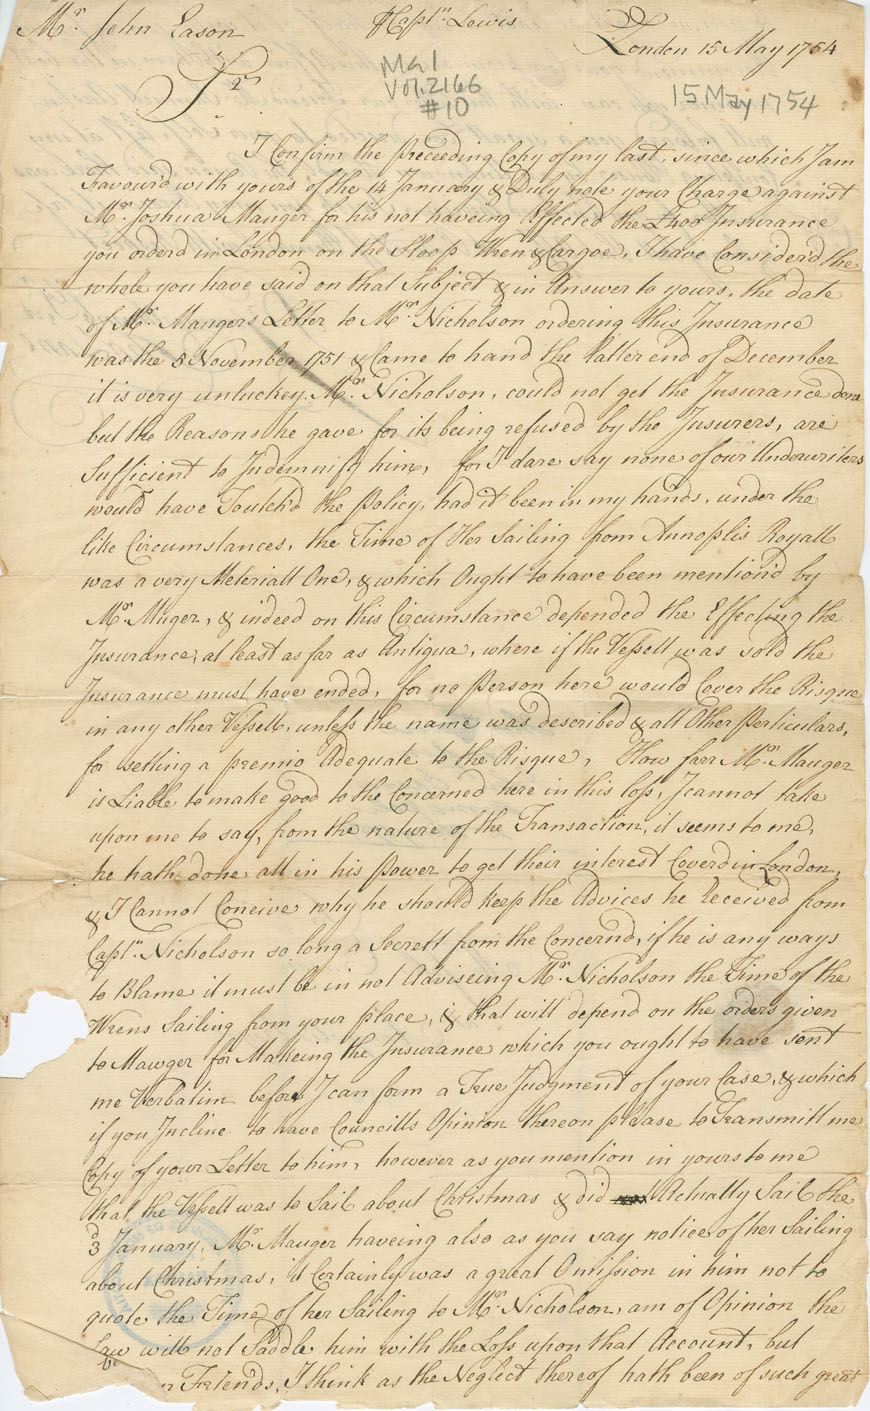 Mr. John Eason
℔ Capt. Lewis
London 15 May 1754
Sr.
MG 1
Vol. 2166
#10
15 May 1754
I Confirm the preceeding Copy of my last, since which I am
Favour'd with yours of the 14 January & Duly note your Charge against
Mr. Joshua Mauger for his not haveing Effected the £400 Insurance
you orderd in London on the Sloop Wren & Cargoe, I have Consider'd the
whole you have said on that Subject & in Answer to yours, the date
of Mr. Maugers Letter to Mr. Nicholson ordering this Insurance
was the 5 November 1751 & Came to hand the latter end of December
it is very unluckey Mr. Nicholson, could not get the Insurance done
but the Reasons he gave for its being refused by the Insurers, are
Sufficient to Indemnify him, for I dare say none of our Underwriters
would have Toutch'd the policy, had it been in my hands, under the
like Circumstances, the Time of Her Sailing from Annoplis Royall
was a very Meteriall One, & which Ought to have been mention'd by
Mr. Muger, & indeed on this Circumstance depended the Effecting the
Insurance, at least as far as Antigua, where if the Vessell was sold the
Insurance must have ended, for no person here would Cover the Risque
in any other Vessell, unless the name was described & all Other perticulars,
for setling a premio Adequate to the Risque, How farr Mr. Mauger
is Liable to make good to the Concerned here in this loss, I cannot take
upon me to say, from the nature of the Transaction, it seems to me,
he hath done all in his power to get their interest Coverd in London,
& I Cannot Conceive why he should keep the Advices he Received from
Capt. Nicholson so long a Secrett from the Concernd, if he is any ways
to Blame it must be in not Adviseing Mr. Nicholson the Time of the
Wrens Sailing from your place, & that will depend on the orders given
to Mawger for Makeing the Insurance which you ought to have sent
me Verbatim before I can form a True Judgment of your Case, & which
if you Incline to have Councills Opinion thereon please to Transmitt me
Copy of your Letter to him, however as you mention in yours to me
that the Vessell was to Sail about Christmas & did Actually Sail the
3d January, Mr. Mauger haveing also as you say notice of her Sailing
about Christmas, it Certainly was a great Omission in him not to
quote the Time of her Sailing to Mr. Nicholson, am of Opinion the
Law will not Saddle him with the Loss upon that Account, but
Friends, I think as the Neglect thereof hath been of such great